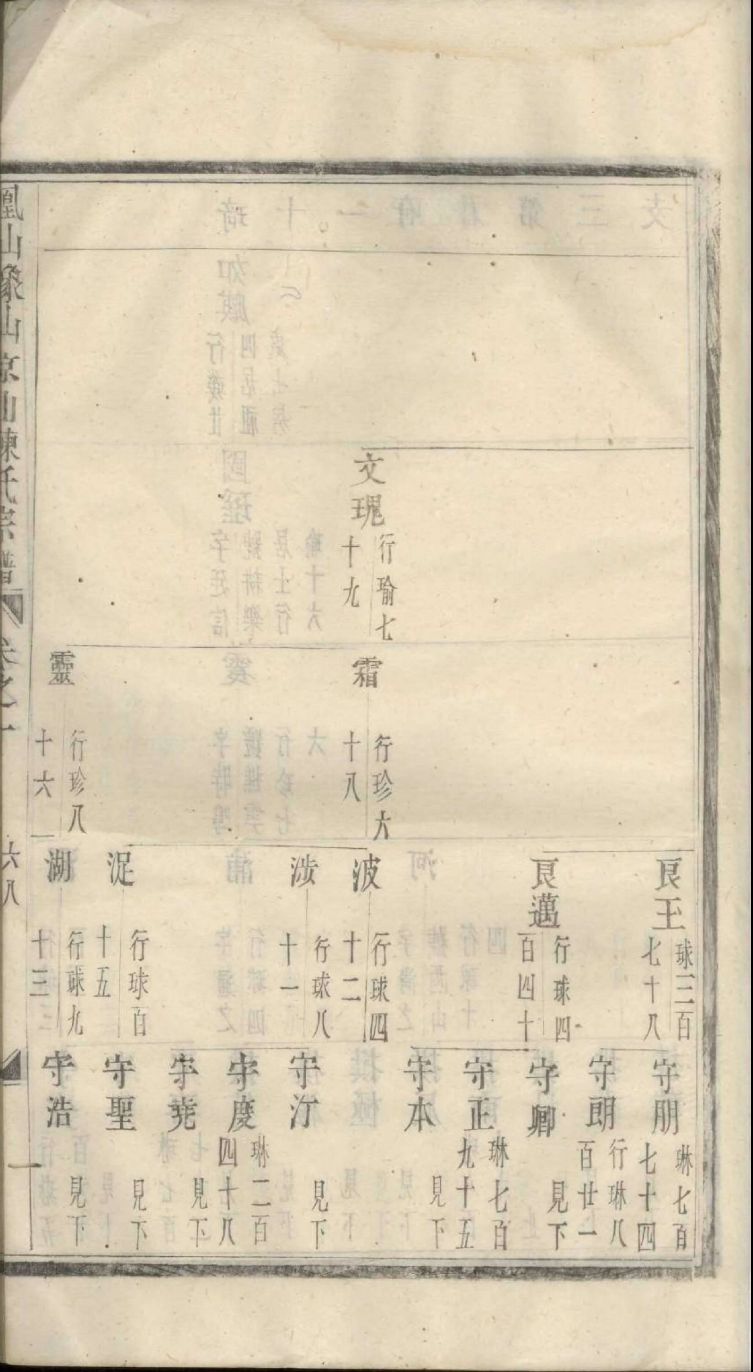 文瑰
行瑜七
十九
霜
行珍六
十八
靈
行珍八
十六
良玉
球三百
七十八
良邁
行球四
百四十
波
行球四
十二
涉
行球八
十一
浞
行球百
十五
湖
行球九
十三
守朋
琳七百
七十四
守朗
行琳八
百廿一
守卿
見下
守正
琳七百
九十五
守本
見下
守汀
見下
守度
琳二百
四十八
守堯
見下
守聖
見下
守浩
見下
鳳山象山京山陳氏宗譜
卷之一
六八
一